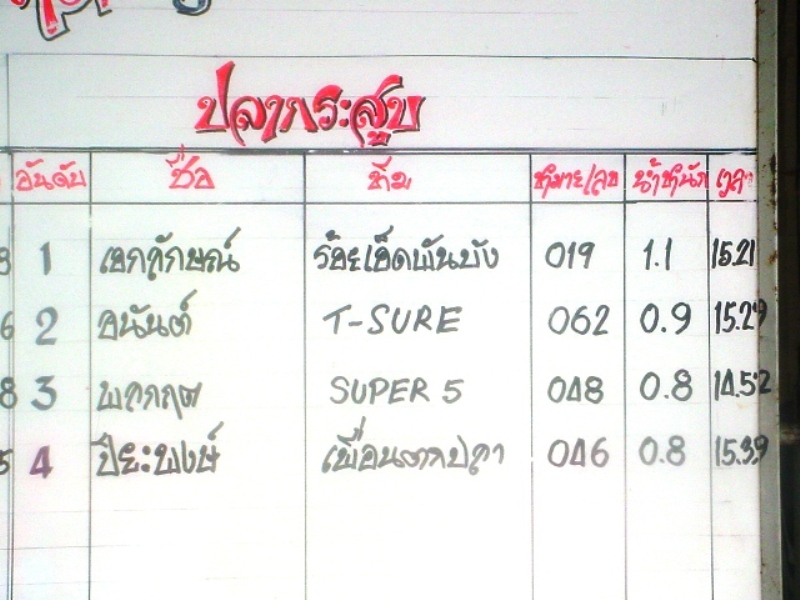 ปลากระสูบ
อันดับ ชื่อ ทีม หมายเลข น้ำหนัก เวลา
1 เอกลักษณ์ ร้อยเอ็ดพันบัง 019 1.1 15.21
2 อนันต์ T-SURE 062 0.9 15.29
3 พลกฤต SUPER 5 048 0.8 14.52
4 ปิยะพงษ์ เพื่อนตกปลา 046 0.8 15.39